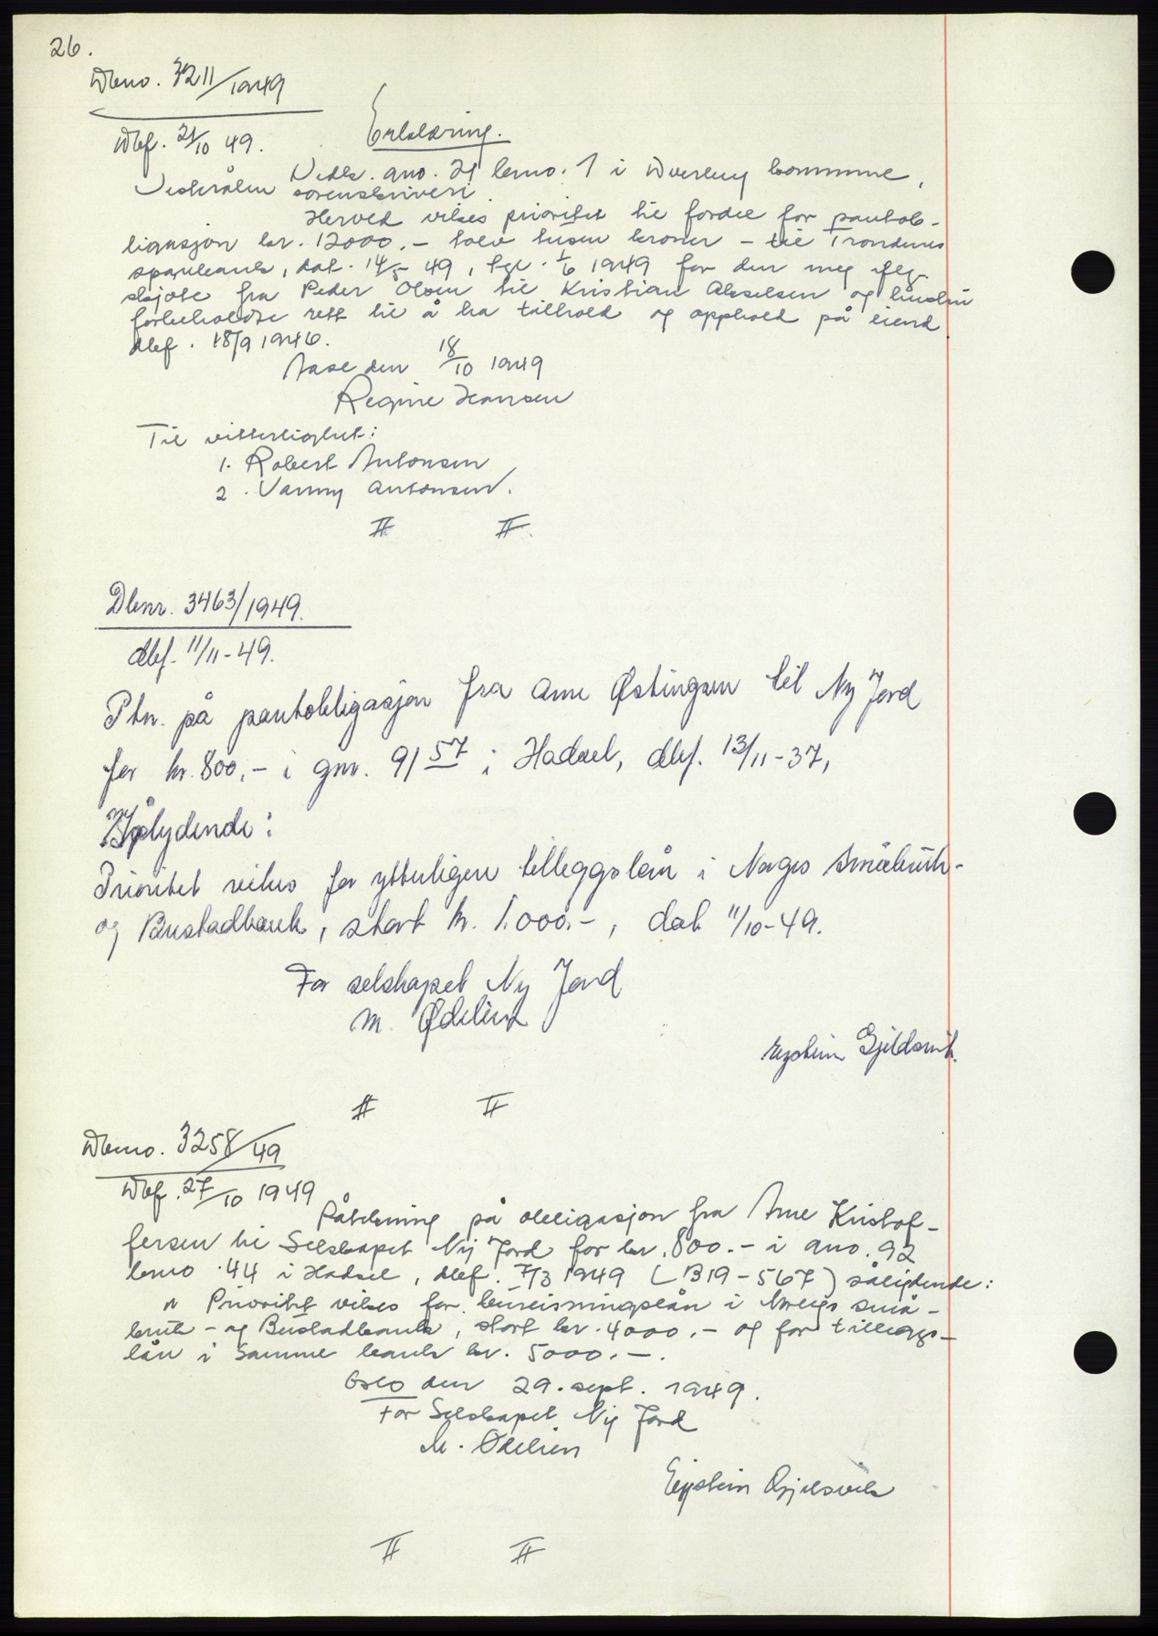 26.
Dbno. 3211/1949
Dbf. 21/10 49.
Erklæring.
Vedk. gno. 21 brno. 1 i Dverberg kommune,
Vesterålen sorenskriveri
Herved vikes prioritet til fordel for pantob-
ligasjon kr. 12000.- tolv tusen kroner - til Trondenes
sparebank, dat. 14/5 49, tgl. 1/6 1949 for den meg iflg.
skjøte fra Peder Olsen til Kristian Akselsen og hustru
forbeholdte rett til å ha tilhold og opphold på eiend
dbf. 18/9 1946.
Åase den 18/10 1949
Regine Hansen
Til vitterlighet:
1. Robert Antonsen
2. Vanny Antonsen.
Dbnr. 3463/1949.
dbf. 11/11-49.
Ptn. på pantobligasjon fra Arne Østingsen til Ny Jord
for kr. 800,- i gnr. 91 57 i Hadsel, dbf. 13/11-37,
sålydende:
Prioritet vikes for ytterligere tilleggslån i Norges Småbruk-
og Bustadbank, stort kr. 1.000.-, dat 11/10-49.
For selskapet Ny Jord
M. Ødelien
Eystein Gjelsvik.
Dbno. 3258/49
Dbf. 27/10 1949
Påtekning på obligasjon fra Arne Kristof-
fersen til Selskapet Ny Jord for kr. 800.- i gno. 92
brno. 44 i Hadsel, dbf. 7/3 1949 (B19-567) sålydende:
" Prioritet vikes for bureisningslån i Norges små-
bruk- og Bustadbank, stort kr. 4000.- og for tilleggs-
lån i samme bank kr. 5000.-.
Oslo den 29. sept. 1949.
For Selskapet Ny Jord
M. Ødelien
Eystein Gjelsvik